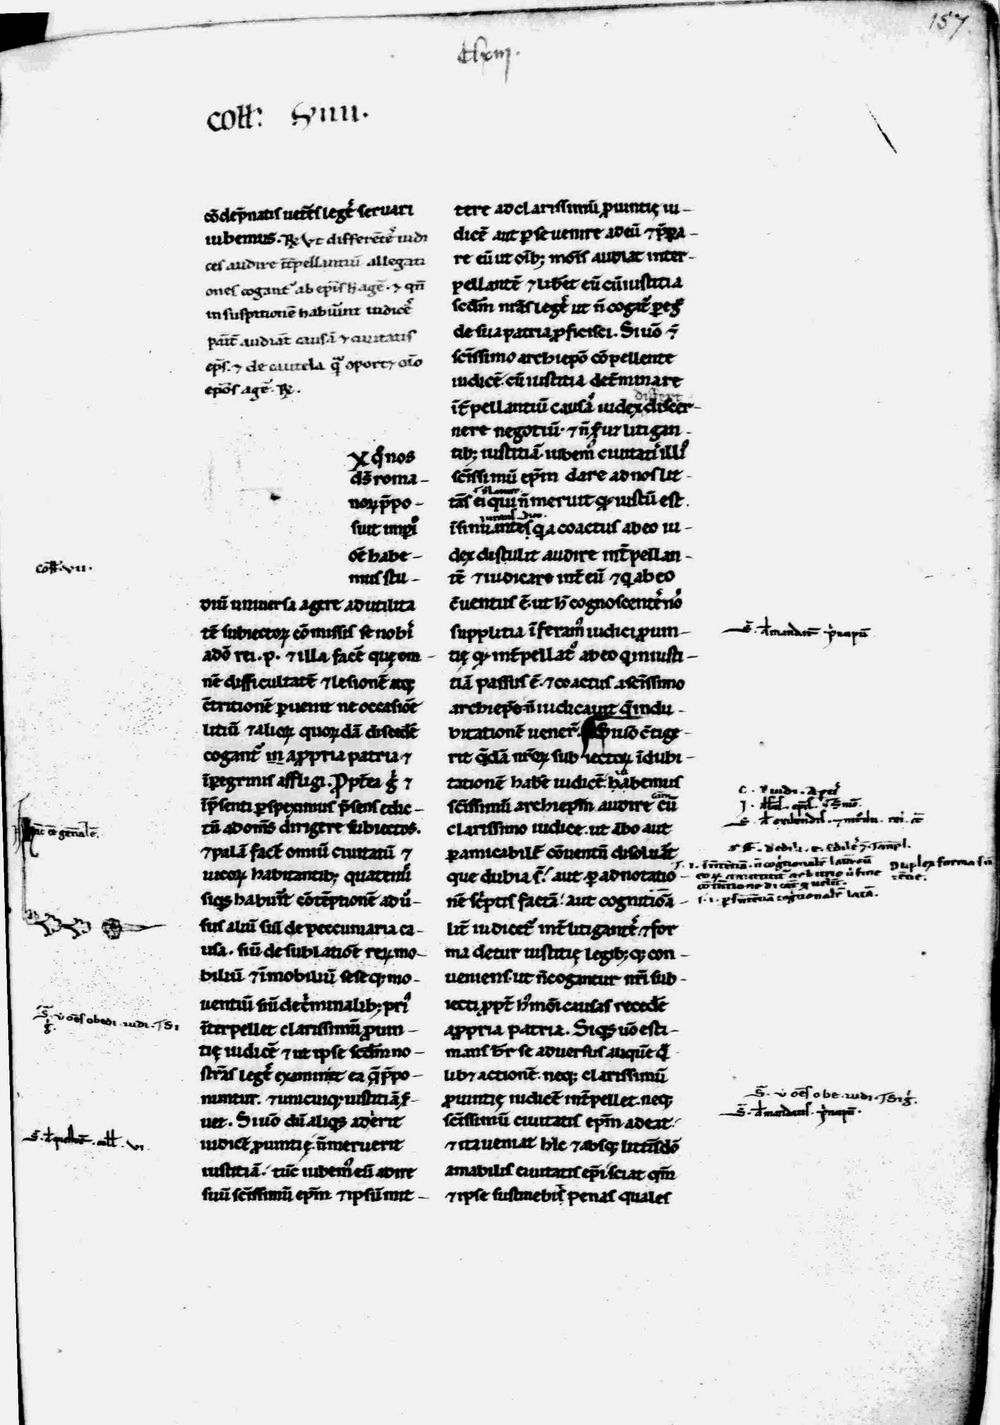 157
Clxiii.
coll: Viiii.
cōdēpnatis uetēs legē seruari
iubemus. Rx Vt differētē iudi
ces audire īt̄pellantiū allegati
ones cogant᷑ ab ep̄is h agē. ⁊ qn̄
in suspitionē habuīnt iudicē
parit᷑ audiāt causā ⁊ ciuitatis
ep̄s. ⁊ de cautela q̄ oport⁊ oīo
ep̄os agē. Rx.
X q̄ nos
ds̄ roma-
noꝝ p̄po-
suit imꝑi
oē habe-
mus stu-
diū uniuersa agere ad utilita
tē subiectoꝝ cōmissis se nobi
ado rei .p. ⁊ illa facē quę om-
nē difficultatē ⁊ lesionē atq;
c̄tritionē ꝑueniūt ne occasiōe
litiū ⁊ alioꝝ quorūdā discedē
cogant᷑ in a ꝓpria patria ⁊
ī ꝑegrinis affligi. Propt̄ea ḡ ⁊
īp̄senti ꝑspeximus p̄sens edic-
tū ad oms̄ dirigere subiectos.
⁊ palā facē omniū ciuitatū ⁊
uicoꝝ habitantib; quatenus
siq̄s habuīt cōtēptionē aduer
sus aliū siue de peccuniaria ca-
usa. siue de sublatiōe reiꝝ mo-
biliū ⁊ īmobiliū seseq; mo-
uentiū siue de c̄minalib; pri᷒
īterpellet clarissimū ꝓuin-
tię iudicē ⁊ ut ipse scd̄m no-
strās legē examinet ea q̄ p̄po-
nuntur. ⁊ unicuiq; iustitiā ẜ-
uet. Si uō dū aliq̄s adierit
iudicē ꝓuintię. n̄ meruerit
iustitiā. tūc iubem᷒ eū adire
suū sc̄issimū ep̄m ⁊ ipsū mit-
tere ad clarissimū ꝓuintię iu-
dicē aut ꝑ se uenire ad eū ⁊ p̄pa-
re eū ut oīb; modis audiat inter-
pellantē ⁊ lib̄et eū cū iustitia
scd̄m nr̄as leges ut n̄ cogat᷑ ꝑeg̃
de sua patria ꝓficisci. Si uō ⁊
sc̄issimo archiep̄o cōpellente
iudicē. cū iustitia det̄minare
īt̄pellantiū causā iudex discer-
differt
nere negotiū. ⁊ n̄ ẜuat litigan-
tib; iustitiā. iubem᷒ ciuitatis illi᷒
sc̄issimū ep̄m dare ad nos lit-
tās ei qui n̄ meruit qd̄ iustū est
īsinuantes. q̄a coactus ab eo iu-
dex distulit audire int̄pellan-
tē ⁊ iudicare int̄ eū ⁊ q̄ ab eo
c̄uentus ē. ut h̄ cognoscentes nos
supplitia īferam᷒ iudici ꝓuin-
tię qd̄ int̄pellat᷒ ab eo q̄ iniusti-
tiā passus ē. ⁊ coactus a sc̄issimo
archiep̄o. n̄ iudicauit q̄ in du-
bitationē uener̄. Si uō c̄tige-
rit q̄dā nr̄oꝝ subiectoꝝ ī dubi-
tationē habē iudicē. habemus
sc̄issimū archiep̄m audire cū
clarissimo iudice. ut ābo aut
ꝑ amicabilē cōuentū dissoluāt
que dubia s̄t. aut ꝑ adnotatio-
nē sc̄ptis factā. aut cognitiōa-
lit̄ iudicet᷑ int̄ litigantes. ⁊ for
ma detur iustitię legib; q; con-
ueniens. ut n̄ cogantur nr̄i sub-
iecti ꝓpt̄ h᷒mōi causas recedē
a ꝓpria patria. Siq̄s uō esti-
mans hr̄e se aduersus aliquē q̄
lib⁊ actionē. neq; clarissimū
ꝓuintię iudicē int̄pellet. neq;
sc̄issimū ciuitatis ep̄m adeat.
⁊ ita ueniat hīc ⁊ absq; litt̄is dō
amabilis ciuitatis ep̄i sciat qm̄
⁊ ipse sustinebit penas quales
coll. vii.
hāc ē generalē.
S. ut oēs obedi. iudi.
coll. vi.
S. mandatis p̄ncipū
Duplex forma sn̄
tēntię.
S. ut oēs obe. iudi.
S. mandatis p̄ncipū.